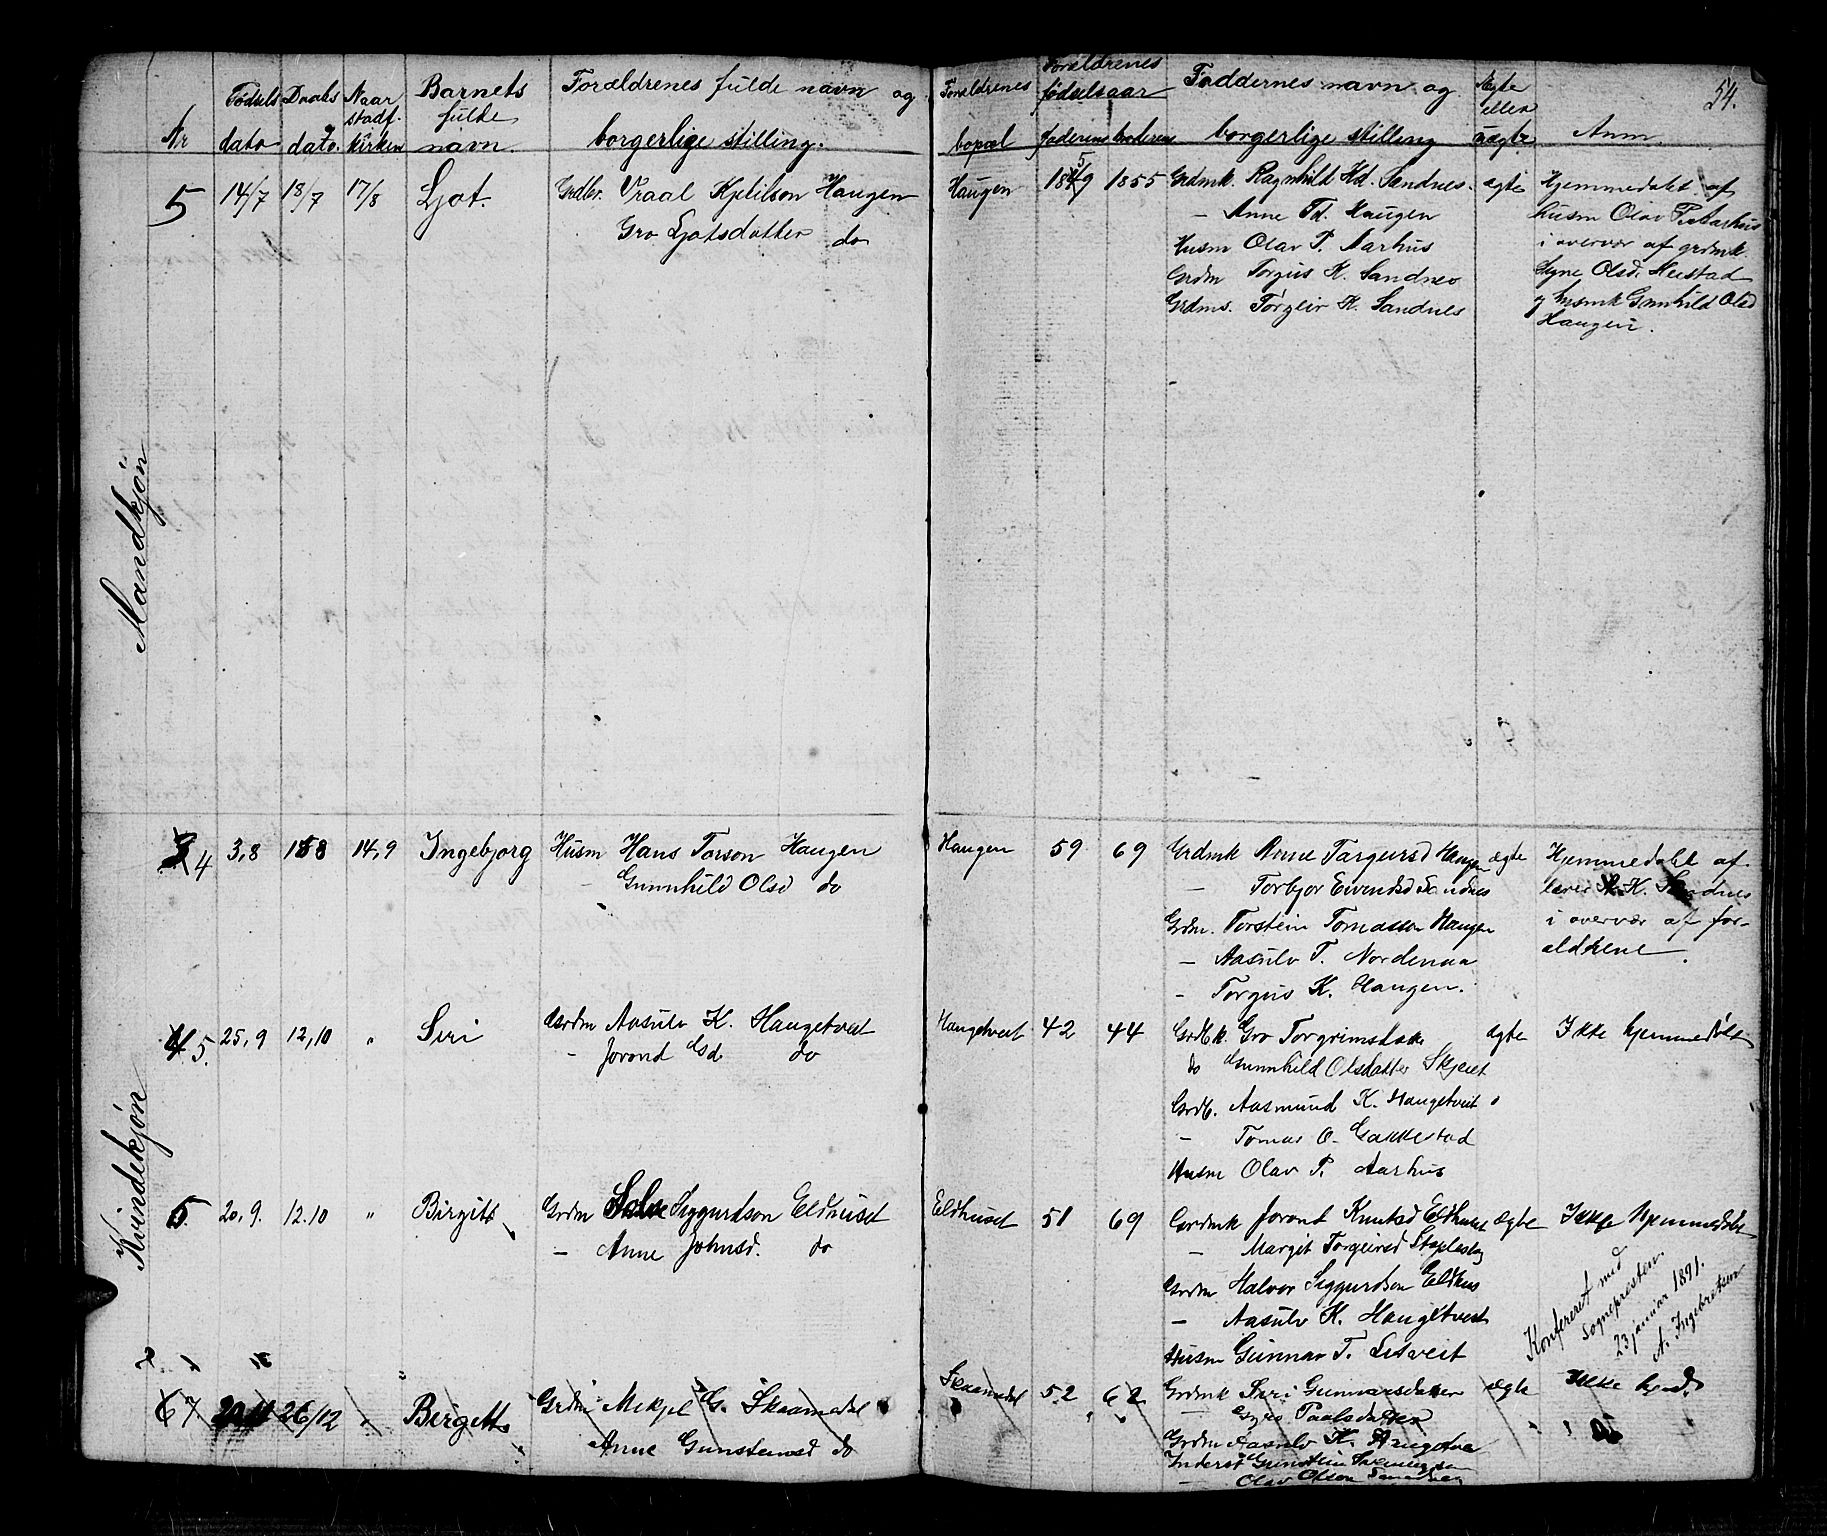 54.
Nr
Fødsels dato
Daabs dato.
Naar stadf. kirken
Barnets fulde navn.
Forældrenes fulde navn og borgerlige stilling.
Forældrenes bopæl
Forældrenes fødselsaar
faderens moderens
Faddernes navn og borgerlige stilling
Ægte eller uægte
Anm.
Mandkjøn
5 14/7 18/7 17/8 Ljot. Grdbr. Vraal Kjetilson Haugen
Gro Ljotsdatter do
Haugen 1859 1855
Grdmk. Ragnhild Kd. Sandnes.
— Anne Td. Haugen
Husm Olav P. Aarhus
Grdm Torgus K. Sandnes
Grdms. Torgeir K. Sandnes
ægte
Hjemmedøbt af
husm Olav P. Aarhus
i overvær af grdmk.
Signe Olsd. Mustad
og husmk Gunhild Olsd
Haugen.
Kvindekjøn
4 3,8 158 14,9 Ingebjorg Husm Hans Torson Haugen
— Gunnhild Olsd do
Haugen 59 69
Grdmk Anne Targeirsd Haugen
— Torbjor Eivendsd Sandnes
Grdm. Torstein Tomasson Haugen
— Aasulv T. Nordenaa
— Torgus K. Haugen.
ægte
Hjemmedøbt af
lærer K. Sandnes
i overvær af for-
ældrene.
5. 25,9 12,10 " Siri Grdm Aasulv K. Haugetveit
— Jorond Gd. do
Haugetveit 42 44
Grdbk. Gro Torgrimsdatter
do Gunnhild Olsdatter Skjeiet
Grdb. Aasmund K. Haugetveit
— Tomas O. Gakkestad
Husm Olav P. Aarhus
ægte
Ikke hjemmedøbt
6. 20,9. 12.10 " Birgitt Grdm Salve Siggurdson Eldhuset
— Anne Johnsd. do
Eldhuset 51 69
Grdmk Jorond Knutsd Eldhuset
— Margit Torgeirsd
Grdm Halvor Siggurdson Eldhus
— Aasulv K. Haugetveit
Husm Gunnar T. Listveit
ægte
Ikke hjemmedøbt
Konfereret med
sognepresten.
23 januar 1891.
A. Ingebretsen
7 26/12 " Birgett Grdm Mikjel G. Skaamedal
Anne Gunsteinsd do
Skaamedal 52 62
Grdmk Siri Gunnarsdatter
Gyro Paalsdatter
Grdm Aasulv K.
Inderst Gunstein
Olav Olson
ægte
Ikke hjmd.